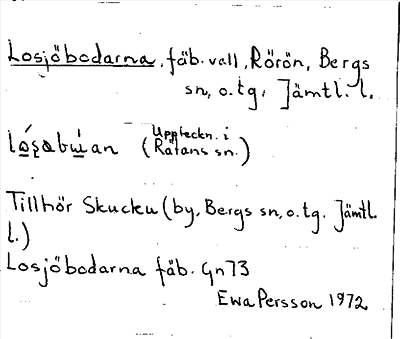 Losjöbodarna, fäb. vall, Rörön, Bergs
sn, o. tg. Jämtl. l.
Uppteckn. i
(Rätans sn.)
Tillhör Skucku (by, Bergs sn, o. tg. Jämtl.
l.)
Losjöbodarna fäb. Gn73
Ewa Persson 1972